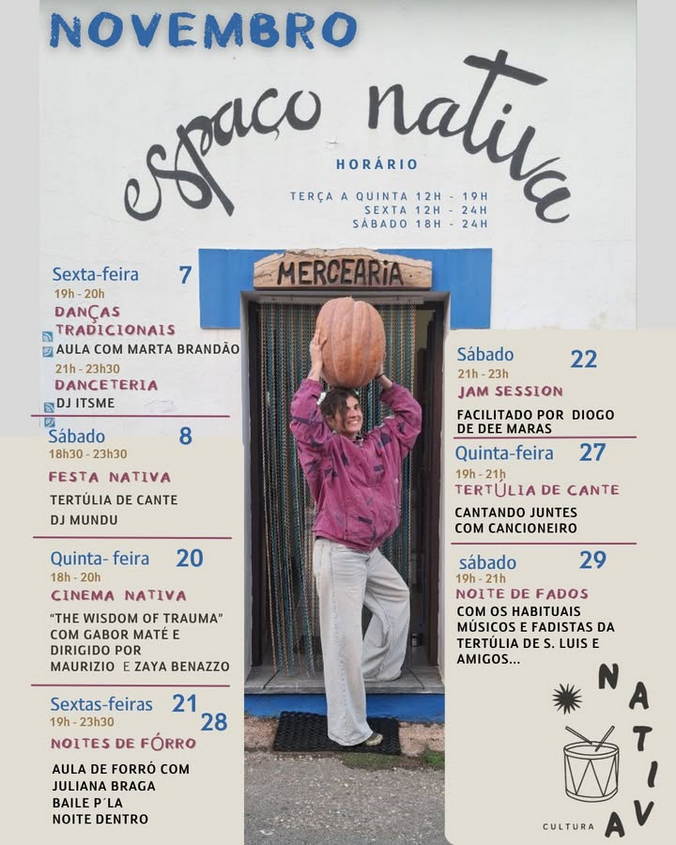 NOVEMBRO
espaço nativa
HORÁRIO
TERÇA A QUINTA 12H - 19H
SEXTA 12H - 24H
SÁBADO 18H - 24H
MERCEARIA
Sexta-feira 7
19h - 20h
DANÇAS
TRADICIONAIS
AULA COM MARTA BRANDÃO
21h - 23h30
DANCETERIA
DJ ITSME
Sábado 8
18h30 - 23h30
FESTA NATIVA
TERTÚLIA DE CANTE
DJ MUNDU
Quinta- feira 20
18h - 20h
CINEMA NATIVA
“THE WISDOM OF TRAUMA”
COM GABOR MATÉ E
DIRIGIDO POR
MAURIZIO E ZAYA BENAZZO
Sextas-feiras 21
28
19h - 23h30
NOITES DE FÓRRO
AULA DE FORRÓ COM
JULIANA BRAGA
BAILE P´LA
NOITE DENTRO
Sábado 22
21h - 23h
JAM SESSION
FACILITADO POR DIOGO
DE DEE MARAS
Quinta-feira 27
19h - 21h
TERTÚLIA DE CANTE
CANTANDO JUNTES
COM CANCIONEIRO
sábado 29
19h - 21h
NOITE DE FADOS
COM OS HABITUAIS
MÚSICOS E FADISTAS DA
TERTÚLIA DE S. LUIS E
AMIGOS...
NATIVA
CULTURA